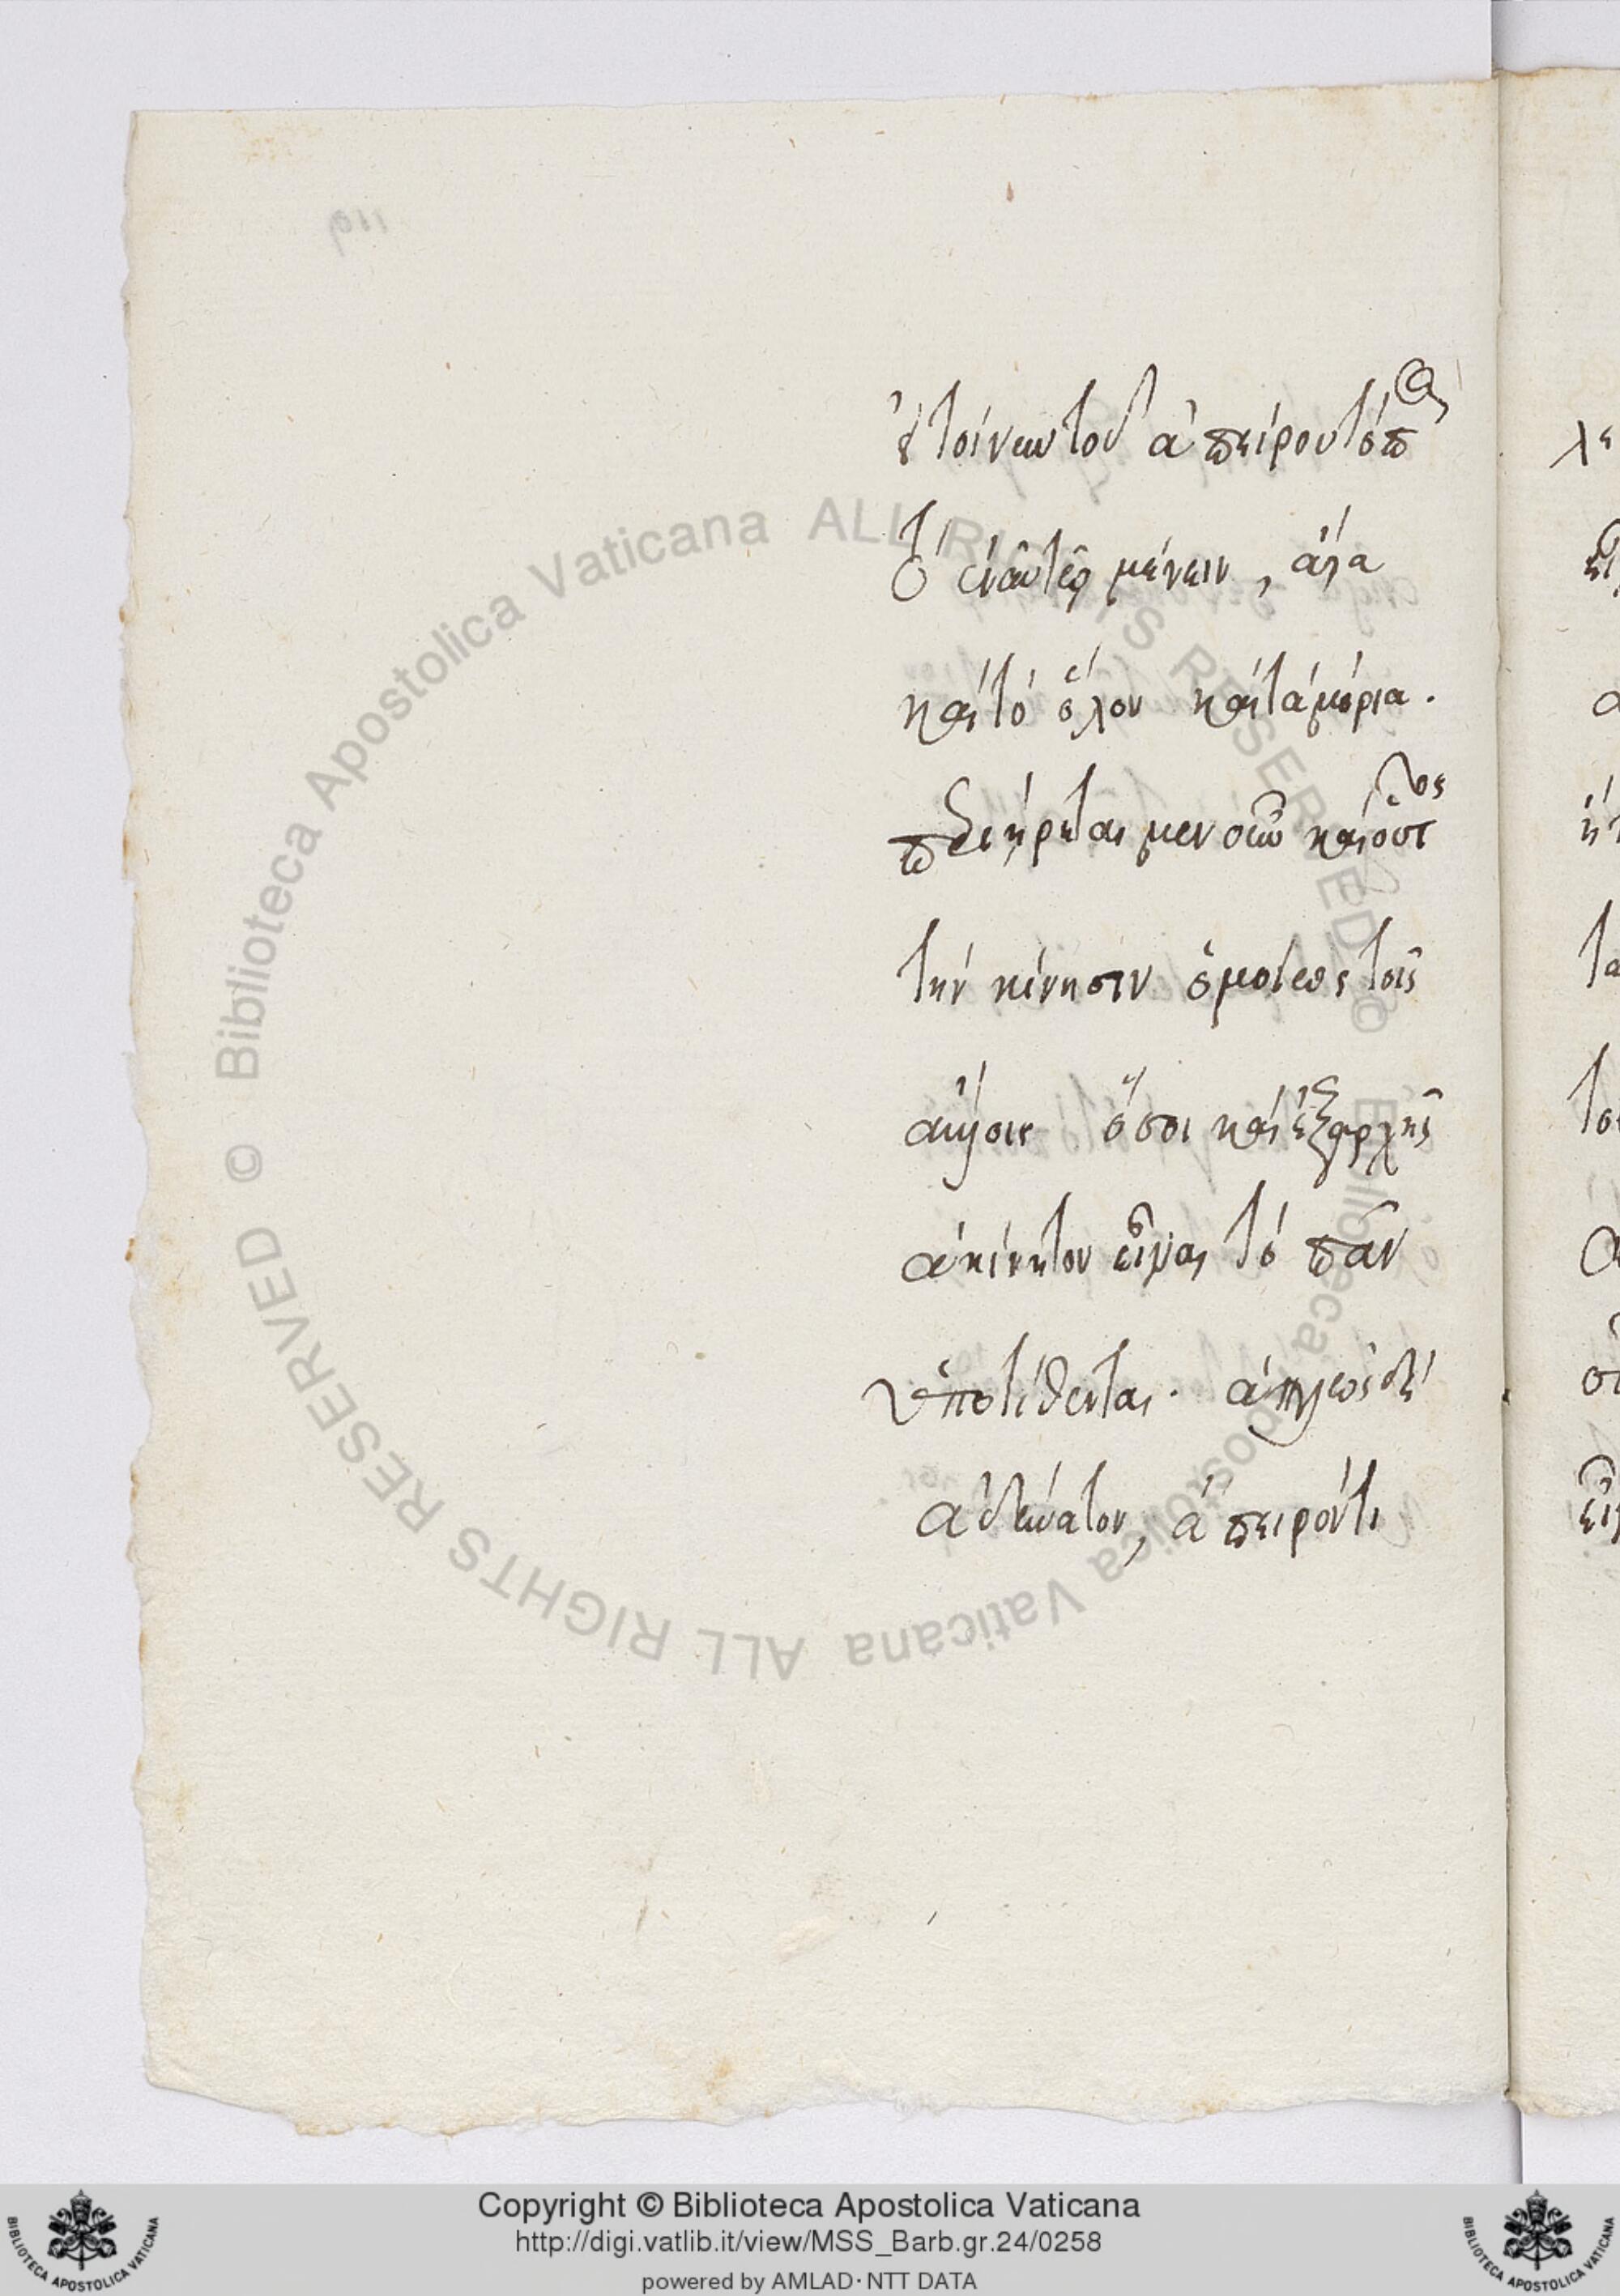 ὁ τοίνυν τοῦ ἀπείρου τόπος
τὸ ἐν αὑτῷ μένειν, ἀλλὰ
καὶ τὸ ὅλον καὶ τὰ μόρια.
προείρηται μὲν οὖν καὶ οὗτος
τὴν κίνησιν ὁμοίως τοῖς
ἄλλοις ὅσοι καὶ ἐξ ἀρχῆς
ἀκίνητον εἶναι τὸ πᾶν
ὑποτίθενται. ἁπλῶς δὲ
ἀδύνατον, ἄπειρόν τι
Copyright © Biblioteca Apostolica Vaticana
http://digi.vatlib.it/view/MSS_Barb.gr.24/0258
powered by AMLAD·NTT DATA
BIBLIOTECA APOSTOLICA VATICANA
BIBLIOTECA APOSTOLICA VATICANA
© Biblioteca Apostolica Vaticana ALL RIGHTS RESERVED
© Biblioteca Apostolica Vaticana ALL RIGHTS RESERVED